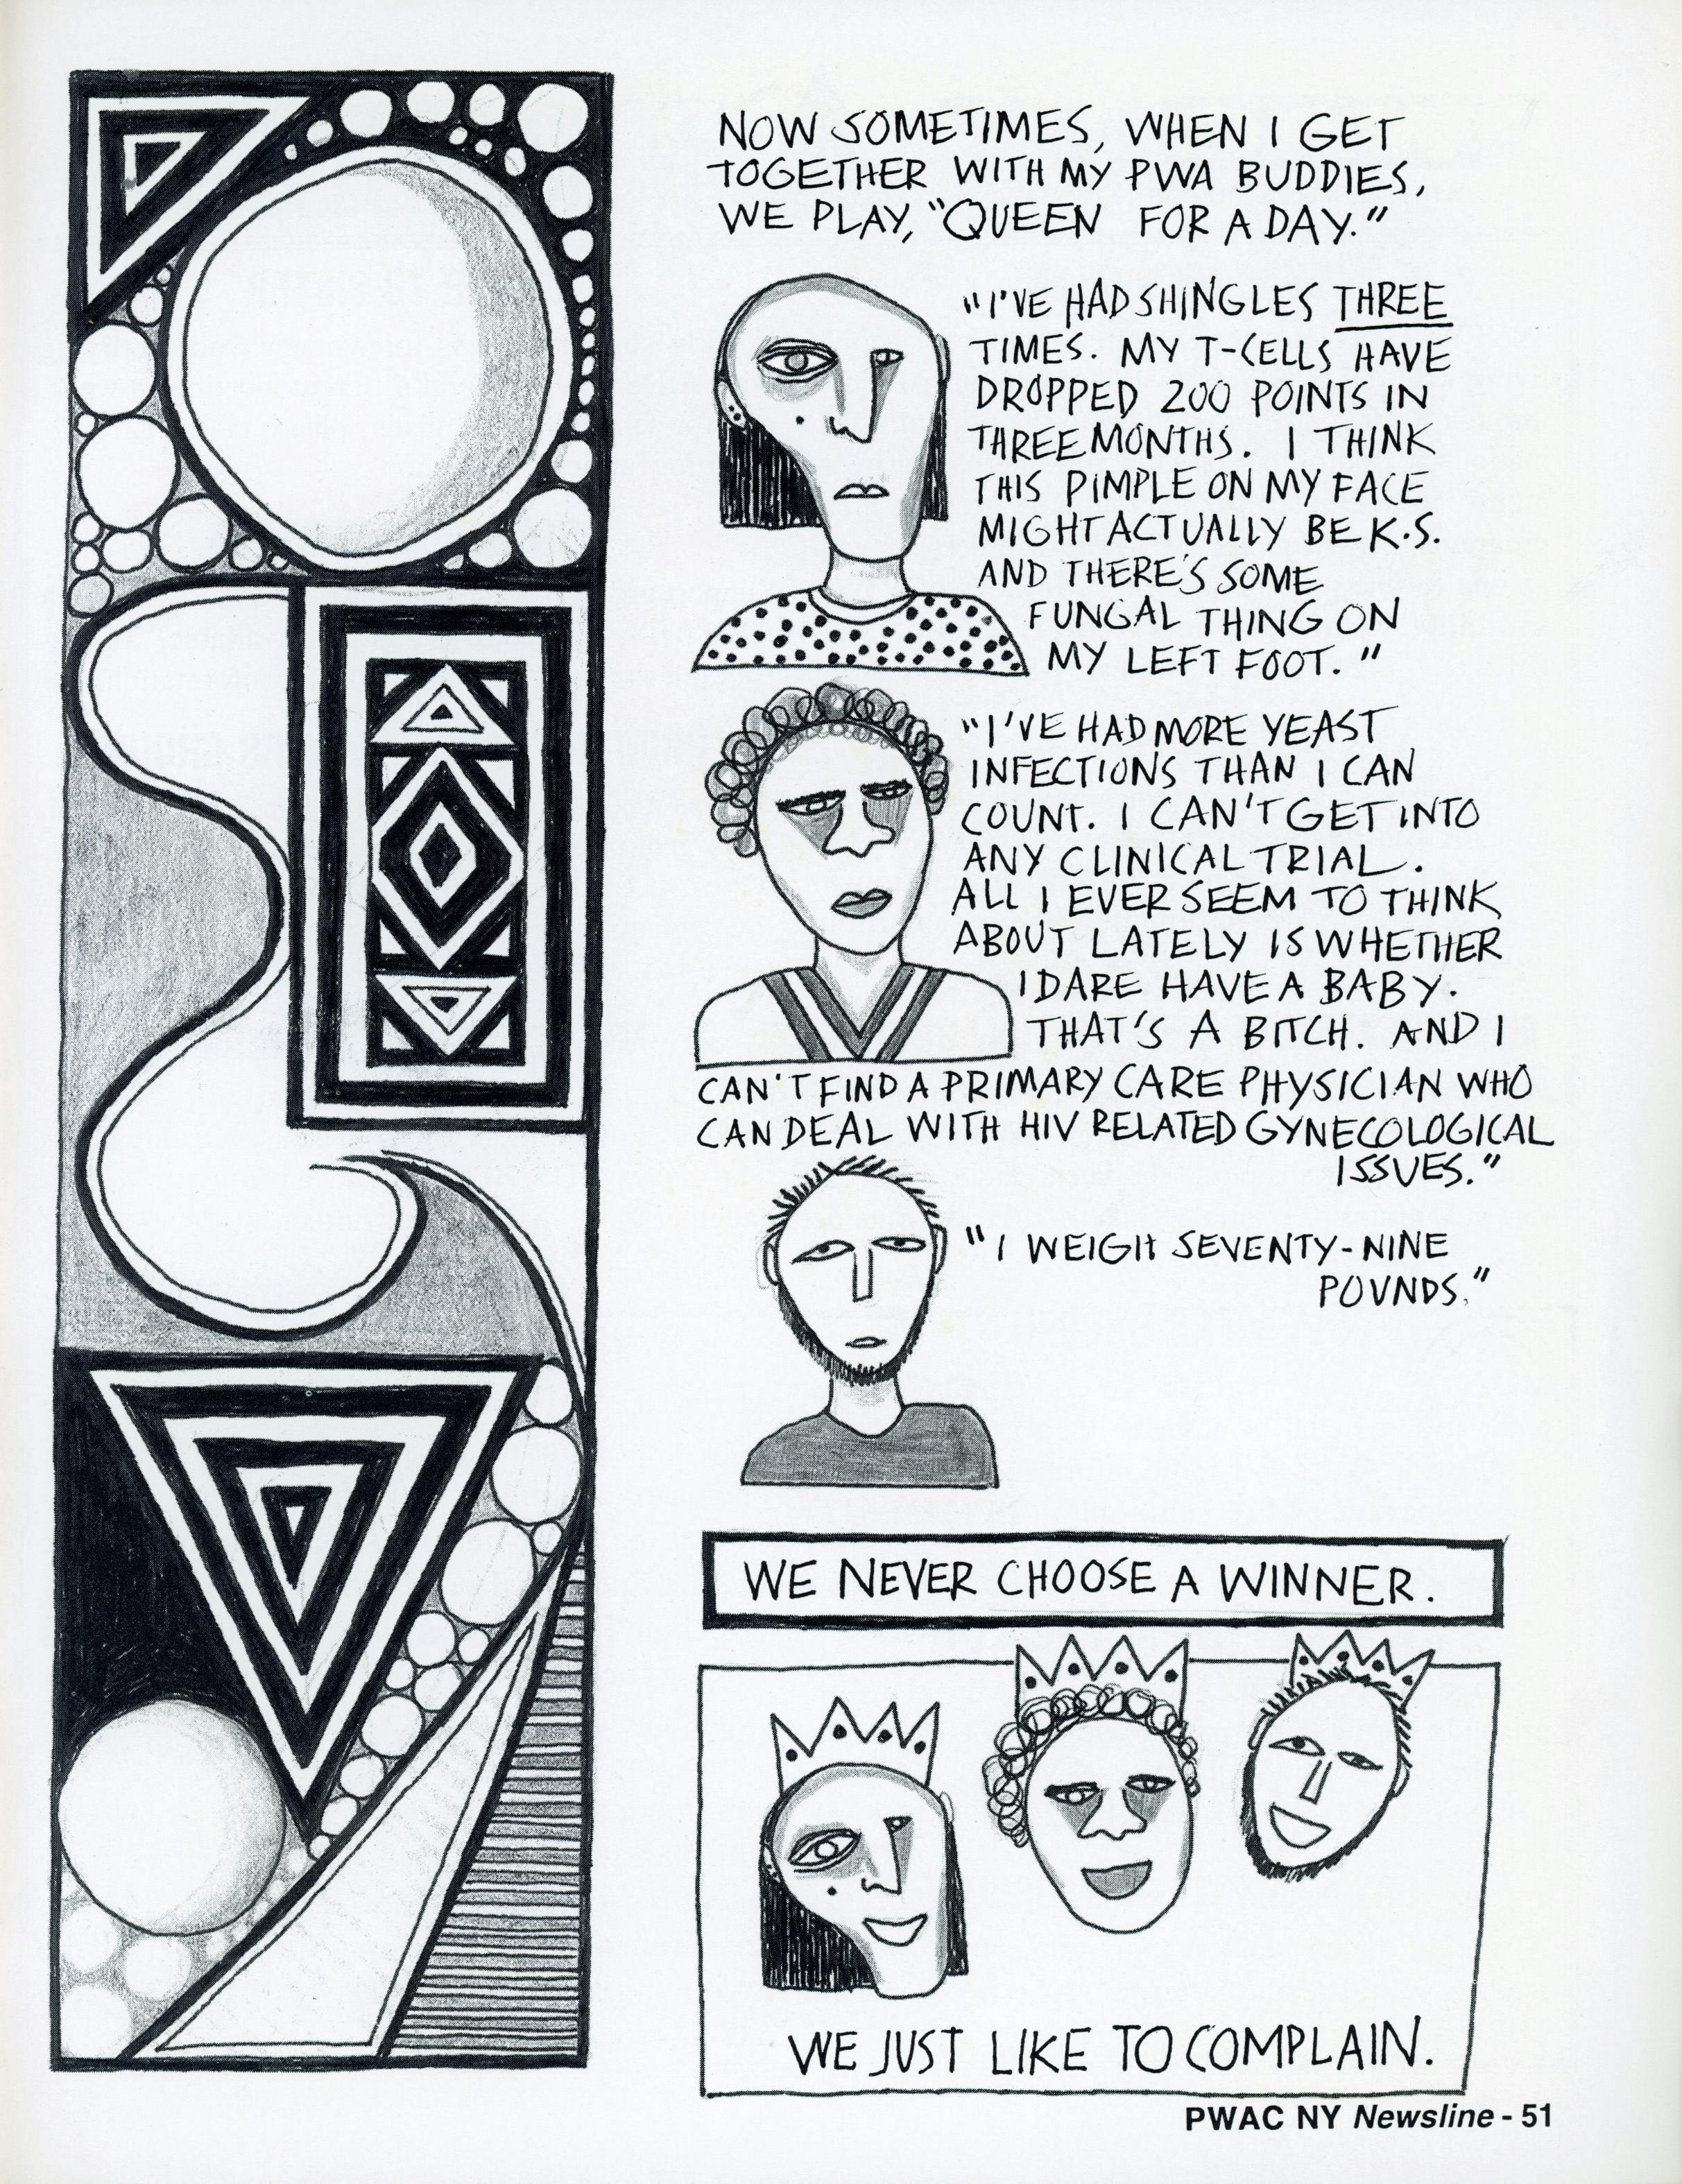 NOW SOMETIMES, WHEN I GET
TOGETHER WITH MY PWA BUDDIES,
WE PLAY, "QUEEN FOR A DAY."
"I'VE HAD SHINGLES THREE
TIMES. MY T-CELLS HAVE
DROPPED 200 POINTS IN
THREE MONTHS. I THINK
THIS PIMPLE ON MY FACE
MIGHT ACTUALLY BE K.S.
AND THERE'S SOME
FUNGAL THING ON
MY LEFT FOOT."
"I'VE HAD MORE YEAST
INFECTIONS THAN I CAN
COUNT. I CAN'T GET INTO
ANY CLINICAL TRIAL.
ALL I EVER SEEM TO THINK
ABOUT LATELY IS WHETHER
I DARE HAVE A BABY.
THAT'S A BITCH. AND I
CAN'T FIND A PRIMARY CARE PHYSICIAN WHO
CAN DEAL WITH HIV RELATED GYNECOLOGICAL
ISSUES."
"I WEIGH SEVENTY-NINE
POUNDS."
WE NEVER CHOOSE A WINNER.
WE JUST LIKE TO COMPLAIN.
PWAC NY Newsline - 51